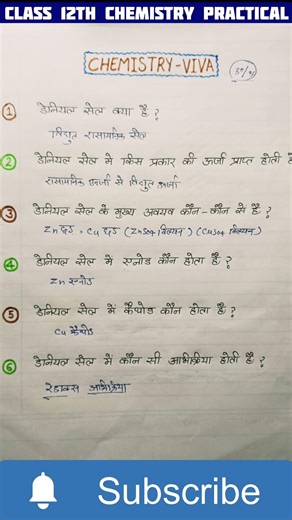 CLASS 12TH CHEMISTRY PRACTICAL
CHEMISTRY-VIVA
1 डेनियल सेल क्या है ?
विद्युत रासायनिक सेल
2 डेनियल सेल में किस प्रकार की ऊर्जा प्राप्त होती है
रासायनिक ऊर्जा से विद्युत ऊर्जा
3 डेनियल सेल के मुख्य अवयव कौन-कौन से है ?
Zn छड़ - Cu छड़ (ZnSO4 विलयन) (CuSO4 विलयन)
4 डेनियल सेल में एनोड कौन होता है ?
Zn एनोड
5 डेनियल सेल में कैथोड कौन होता है ?
Cu कैथोड
6 डेनियल सेल में कौन सी अभिक्रिया होती है ?
रेडाक्स अभिक्रिया
Subscribe